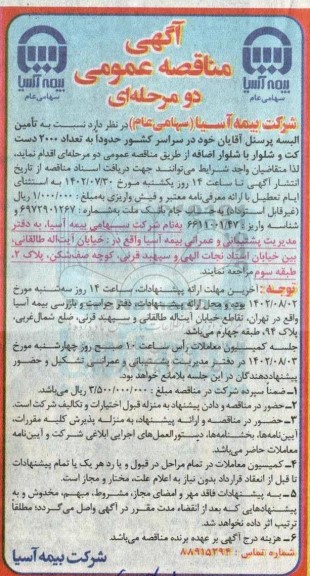 آگهی
مناقصه عمومی
دو مرحله‌ای
بیمه آسیا
سهامی عام
بیمه آسیا
سهامی عام
شرکت بیمه آسیا (سهامی عام) در نظر دارد نسبت به تأمین
البسه پرسنل آقایان خود در سراسر کشور حدوداً به تعداد ۲۰۰۰ دست
کت و شلوار با شلوار اضافه از طریق مناقصه عمومی دو مرحله‌ای اقدام نماید،
لذا متقاضیان واجد شرایط می‌توانند جهت دریافت اسناد مناقصه از تاریخ
انتشار آگهی تا ساعت ۱۴ روز یکشنبه مورخ ۱۴۰۲/۰۷/۳۰ به استثنای
ایام تعطیل با ارائه معرفی‌نامه معتبر و فیش واریزی به‌مبلغ ۱/۰۰۰/۰۰۰ ریال
(غیرقابل استرداد) به‌حساب جام بانک ملت به‌شماره : ۶۹۷۲۹۰۱۲۶۷ و
شناسه واریز : ۶۶۱۱۰۰۱/۴۷ به‌نام شرکت سهامی بیمه آسیا، به دفتر
مدیریت پشتیبانی و عمرانی بیمه آسیا واقع در : خیابان آیت‌اله طالقانی،
بین خیابان استاد نجات الهی و سپهبد قرنی، کوچه صف‌شکن، پلاک ۲،
طبقه سوم مراجعه نمایند.
توجه : آخرین مهلت ارائه پیشنهادات، ساعت ۱۴ روز سه‌شنبه مورخ
۱۴۰۲/۰۸/۰۲ بوده و محل ارائه پیشنهادات، دفتر حراست و بازرسی بیمه آسیا
واقع در تهران، تقاطع خیابان آیت‌اله طالقانی و سپهبد قرنی، ضلع شمال‌غربی،
پلاک ۹۴، طبقه چهارم می‌باشد.
جلسه کمیسیون معاملات رأس ساعت ۱۰ صبح روز چهارشنبه مورخ
۱۴۰۲/۰۸/۰۳ در دفتر مدیریت پشتیبانی و عمرانی تشکیل و حضور
پیشنهاددهندگان در این جلسه بلامانع خواهد بود.
۱– ضمناً سپرده شرکت در مناقصه مبلغ : ۳/۵۰۰/۰۰۰/۰۰۰ ریال می‌باشد.
۲– حضور در مناقصه و دادن پیشنهاد به منزله قبول اختیارات و تکالیف شرکت است.
۳– حضور در مناقصه و ارائه پیشنهاد، به منزله پذیرش کلیه مقررات،
آیین‌نامه‌ها، بخشنامه‌ها، دستورالعمل‌های اجرایی ابلاغی شرکت و آیین‌نامه
معاملات حاضر می‌باشد.
۴– کمیسیون معاملات در تمام مراحل در قبول و یا رد هر یک یا تمام پیشنهادات
تا قبل از انعقاد قرارداد بدون نیاز به اعلام علت، مختار و مجاز است.
۵– به پیشنهادات فاقد مهر و امضای مجاز، مشروط، مبهم، مخدوش و به
پیشنهادهایی که بعد از انقضاء مدت مقرر در آگهی واصل می‌گردد؛ مطلقاً
ترتیب اثر داده نخواهد شد.
۶– هزینه درج آگهی بر عهده برنده مناقصه می‌باشد.
شماره تماس : ۸۸۹۱۵۲۹۴
شرکت بیمه آسیا